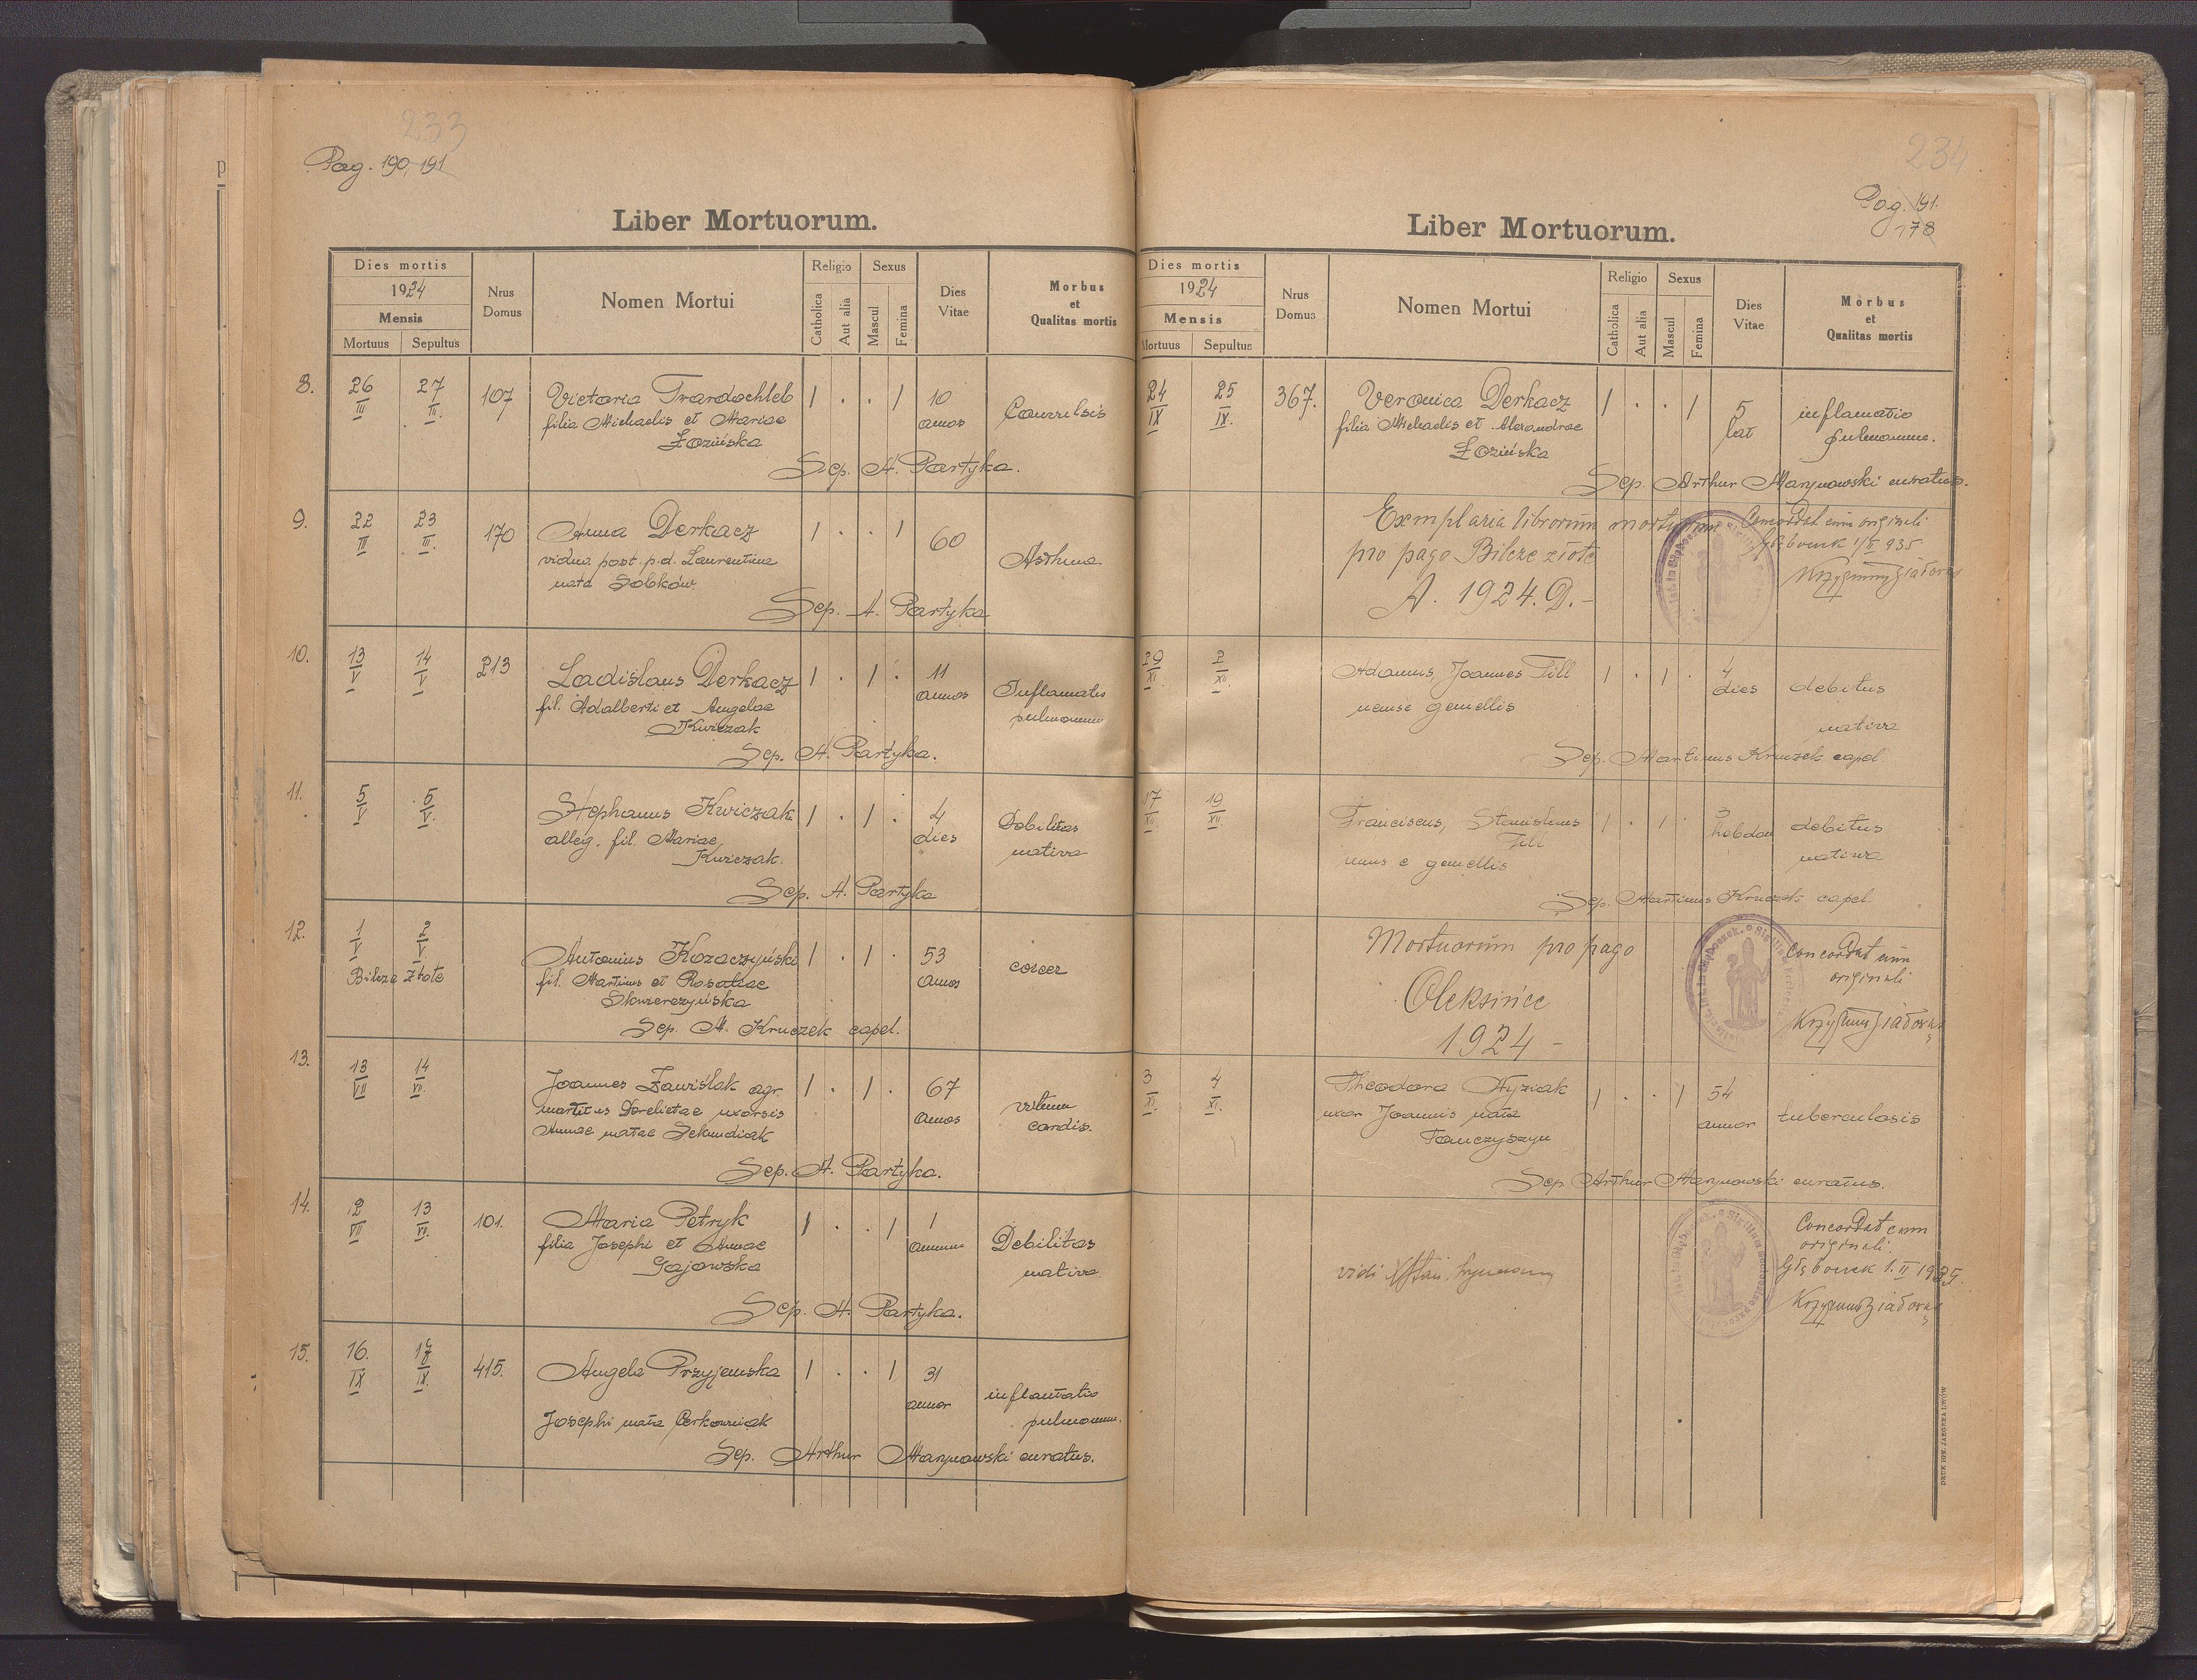 233
Pag. 190, 191
Liber Mortuorum.
Dies mortis
1924
Mensis
Mortuus Sepultus
Nrus Domus
Nomen Mortui
Religio
Catholica
Aut alia
Sexus
Mascul
Femina
Dies Vitae
Morbus
et
Qualitas mortis
8. 26/III 27/III. 107 Victoria Trardochleb 1 . . 1 10 annos Convulsis
filia Michaelis et Mariae
Łozińska
Sep. A. Partyka.
9. 22/III 23/III. 170 Anna Derkacz 1 . . 1 60 Asthma
vidua post p.d. Laurentium
nata Sobków
Sep. A. Partyka
10. 13/V 14/V 213 Ladislaus Derkacz 1 . 1 . 11 annos Inflamatis pulmonum
fil. Adalberti et Angelae
Kwiczak
Sep. A. Partyka.
11. 5/V 5/V. Stephanus Kwiczak 1 . 1 . 4 dies Debilitas nativa
alleg. fil. Mariae
Kwiczak.
Sep. A. Partyka
12. 1/V 2/V Antonius Kozaczyński 1 . 1 . 53 annos
Bilcze Złote fil. Martinus et Rosaliae
Skwierczyńska
Sep. M. Kruczek capel.
13. 13/VII 14/VII. Joannes Zawiślak agr. 1 . 1 . 67 annos vitium cordis.
maritus Derelictae uxoris
Annae natae Sekundiak
Sep. A. Partyka.
14. 12/VII 13/VII. 101. Maria Petryk 1 . . 1 1 annum Debilitas nativa
filia Josephi et Annae
Gajowska
Sep. A. Partyka.
15. 16./IX 18/IX. 415. Angela Przyjemska 1 . . 1 31 annor inflamatio pulmonum.
Josephi nata Cerkowniak
Sep. Arthur Marynowski curatus.
234
Pag. 191.
178
Liber Mortuorum.
Dies mortis
1924
Mensis
Mortuus Sepultus
Nrus Domus
Nomen Mortui
Religio
Catholica
Aut alia
Sexus
Mascul
Femina
Dies Vitae
Morbus
et
Qualitas mortis
24/IX 25/IX. 367. Veronica Derkacz 1 . . 1 5 lat inflamatio pulmonum.
filia Michaelis et Alexandrae
Łozińska
Sep. Arthur Marynowski curatus.
Exemplaria librorum mortuorum
pro pago Bilcze złote
A. 1924. D.-
Concordat cum originali
Głęboczek 1/II 935
29/XI. 2/XII. Adamus, Joannes Till 1 . 1 . 4 dies debitus nativa
gemellis
Sep. Martinus Kruczek capel
17/XII. 19/XII. Franciscus, Stanislaus 1 . 1 . 3 hebdom debitus nativa
Till
unus e gemellis
Sep. Martinus Kruczek capel.
Mortuorum pro pago
Oleksińce
1924 -
Concordat cum
originali
3/XI. 4/XI. Theodora Hyziak 1 . . 1 54 annor tuberculosis
uxor Joannis nata
Tanczyszyn
Sep. Arthur Marynowski curatus.
vidi
Concordat cum
originali.
Głęboczek 1. II 1935.
DRUK IGN. JAEGERA LWÓW